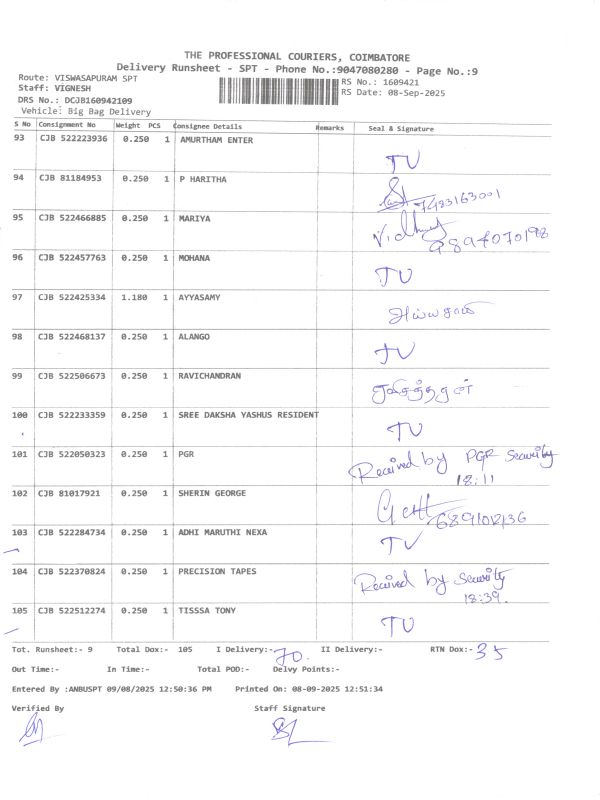 THE PROFESSIONAL COURIERS, COIMBATORE
Delivery Runsheet - SPT - Phone No.:9047080280 - Page No.:9
Route: VISWASAPURAM SPT RS No.: 1609421
Staff: VIGNESH RS Date: 08-Sep-2025
DRS No.: DCJB160942109
Vehicle: Big Bag Delivery
S No Consignment No Weight PCS Consignee Details Remarks Seal & Signature
93 CJB 522223936 0.250 1 AMURTHAM ENTER TU
94 CJB 81184953 0.250 1 P HARITHA 7483163001
95 CJB 522466885 0.250 1 MARIYA 9894070198
96 CJB 522457763 0.250 1 MOHANA TU
97 CJB 522425334 1.180 1 AYYASAMY அய்யசாமி
98 CJB 522468137 0.250 1 ALANGO TU
99 CJB 522506673 0.250 1 RAVICHANDRAN
100 CJB 522233359 0.250 1 SREE DAKSHA YASHUS RESIDENT TU
101 CJB 522050323 0.250 1 PGR Recived by PGR Security
18:11
102 CJB 81017921 0.250 1 SHERIN GEORGE
103 CJB 522284734 0.250 1 ADHI MARUTHI NEXA TU
104 CJB 522370824 0.250 1 PRECISION TAPES Recived by Security
18:39.
105 CJB 522512274 0.250 1 TISSSA TONY TU
Tot. Runsheet:- 9 Total Dox:- 105 I Delivery:- 70. II Delivery:- RTN Dox:- 35
Out Time:- In Time:- Total POD:- Delvy Points:-
Entered By :ANBUSPT 09/08/2025 12:50:36 PM Printed On: 08-09-2025 12:51:34
Verified By Staff Signature